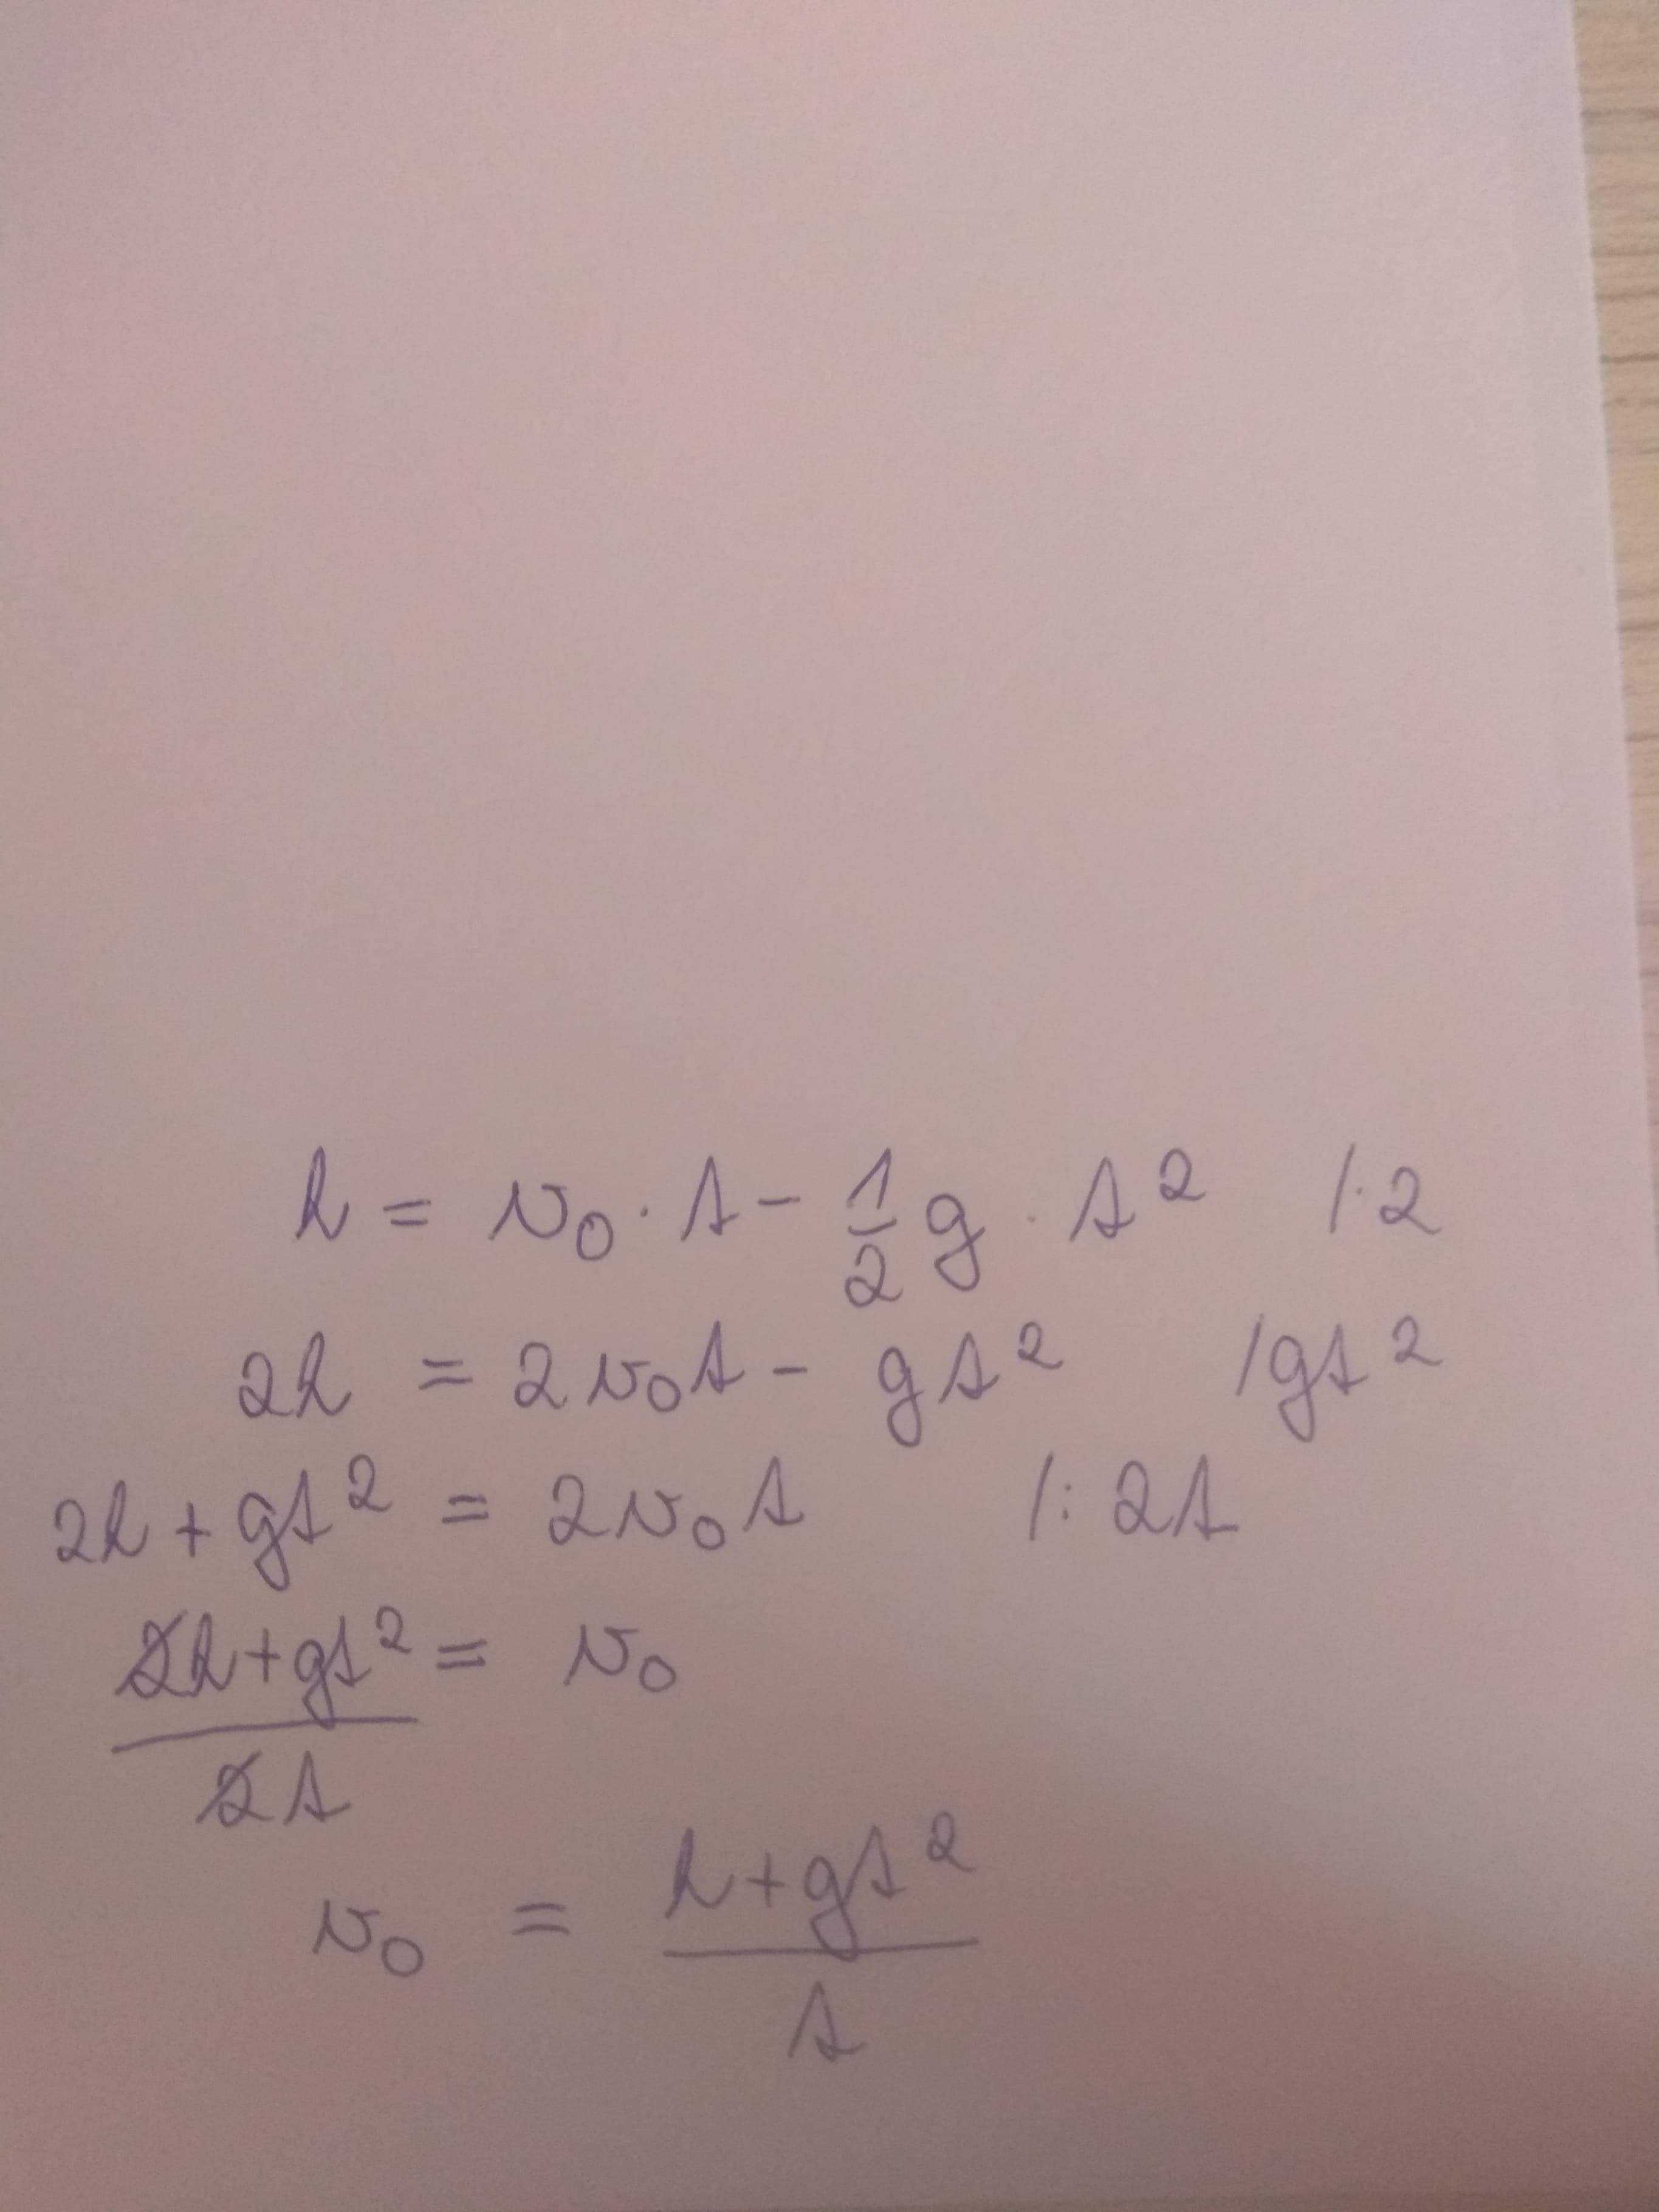 h = v₀ · t - 1/2 g · t² /·2
2h = 2v₀t - gt² /gt²
2h + gt² = 2v₀t /: 2t
(2h + gt²)/(2t) = v₀
v₀ = (h + gt²)/t